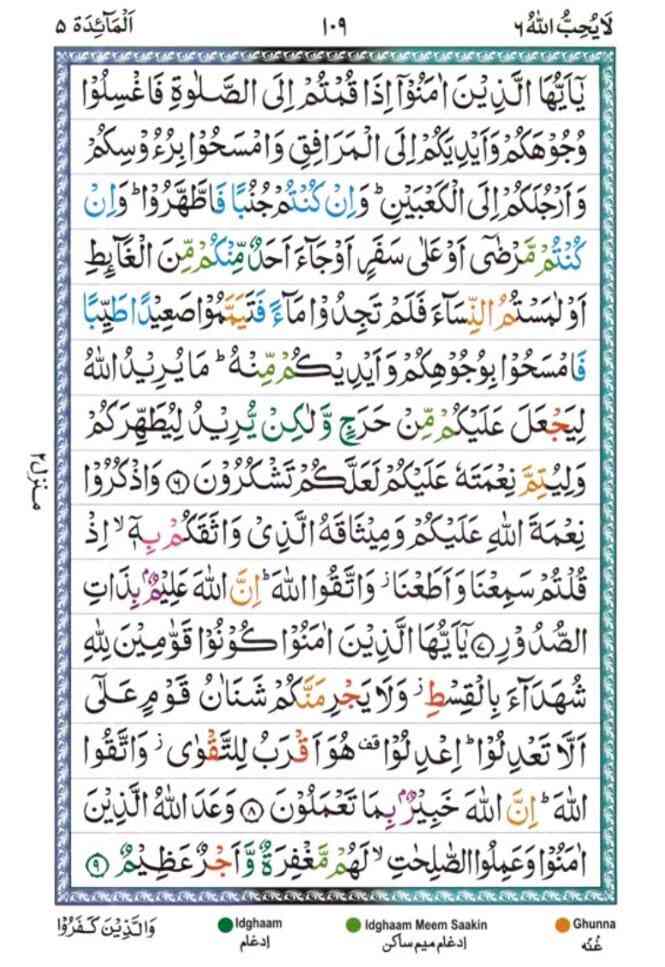 لَا يُحِبُّ اللّٰهُ ٦
١٠٩
اَلْمَآئِدَة ٥
يٰٓاَيُّهَا الَّذِيْنَ اٰمَنُوْٓا اِذَا قُمْتُمْ اِلَى الصَّلٰوةِ فَاغْسِلُوْا
وُجُوْهَكُمْ وَاَيْدِيَكُمْ اِلَى الْمَرَافِقِ وَامْسَحُوْا بِرُءُوْسِكُمْ
وَاَرْجُلَكُمْ اِلَى الْكَعْبَيْنِ ؕ وَاِنْ كُنْتُمْ جُنُبًا فَاطَّهَّرُوْا ؕ وَاِنْ
كُنْتُمْ مَّرْضٰۤى اَوْ عَلٰى سَفَرٍ اَوْ جَآءَ اَحَدٌ مِّنْكُمْ مِّنَ الْغَآئِطِ
اَوْ لٰمَسْتُمُ النِّسَآءَ فَلَمْ تَجِدُوْا مَآءً فَتَيَمَّمُوْا صَعِيْدًا طَيِّبًا
فَامْسَحُوْا بِوُجُوْهِكُمْ وَاَيْدِيْكُمْ مِّنْهُ ؕ مَا يُرِيْدُ اللّٰهُ
لِيَجْعَلَ عَلَيْكُمْ مِّنْ حَرَجٍ وَّلٰكِنْ يُّرِيْدُ لِيُطَهِّرَكُمْ
وَلِيُتِمَّ نِعْمَتَهٗ عَلَيْكُمْ لَعَلَّكُمْ تَشْكُرُوْنَ ۝٦ وَاذْكُرُوْا
نِعْمَةَ اللّٰهِ عَلَيْكُمْ وَمِيْثَاقَهُ الَّذِيْ وَاثَقَكُمْ بِهٖۤ ۙ اِذْ
قُلْتُمْ سَمِعْنَا وَاَطَعْنَا ۫ وَاتَّقُوا اللّٰهَ ؕ اِنَّ اللّٰهَ عَلِيْمٌۢ بِذَاتِ
الصُّدُوْرِ ۝٧ يٰٓاَيُّهَا الَّذِيْنَ اٰمَنُوْا كُوْنُوْا قَوّٰمِيْنَ لِلّٰهِ
شُهَدَآءَ بِالْقِسْطِ ۫ وَلَا يَجْرِمَنَّكُمْ شَنَاٰنُ قَوْمٍ عَلٰٓى
اَلَّا تَعْدِلُوْا ؕ اِعْدِلُوْا ۟ هُوَ اَقْرَبُ لِلتَّقْوٰى ۫ وَاتَّقُوا
اللّٰهَ ؕ اِنَّ اللّٰهَ خَبِيْرٌۢ بِمَا تَعْمَلُوْنَ ۝٨ وَعَدَ اللّٰهُ الَّذِيْنَ
اٰمَنُوْا وَعَمِلُوا الصّٰلِحٰتِ ۙ لَهُمْ مَّغْفِرَةٌ وَّاَجْرٌ عَظِيْمٌ ۝٩
منزل ٢
وَالَّذِيْنَ كَفَرُوْا
Idghaam
إدغام
Idghaam Meem Saakin
إدغام میم ساکن
Ghunna
غُنّه